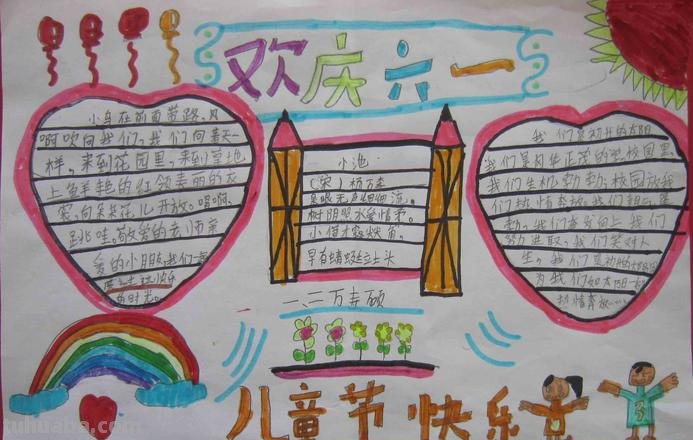 欢庆六一
小鸟在前面带路,风
啊吹向我们,我们向春天一
样,来到花园里,来到草地
上,鲜艳的红领美丽的衣
裳,向朵朵花儿开放。唱啊,
跳哇。敬爱的老师亲
爱的小朋友,我们一起
度过这快乐
的时光。
小池
(宋)杨万里
泉眼无声惜细流,
树阴照水爱晴柔。
小荷才露尖尖角,
早有蜻蜓立上头
我们是初升的太阳
我们是风华正茂的学,校园里,
我们生机勃勃,校园放我
们热情奔放,我们朝气蓬
勃,我们奋发向上,我们
努力进取。我们笑对人
生。我们是初升的太阳
为我们如太阳一般
热情奔放……
一、二万寿硕
儿童节快乐
tuhuaba.com